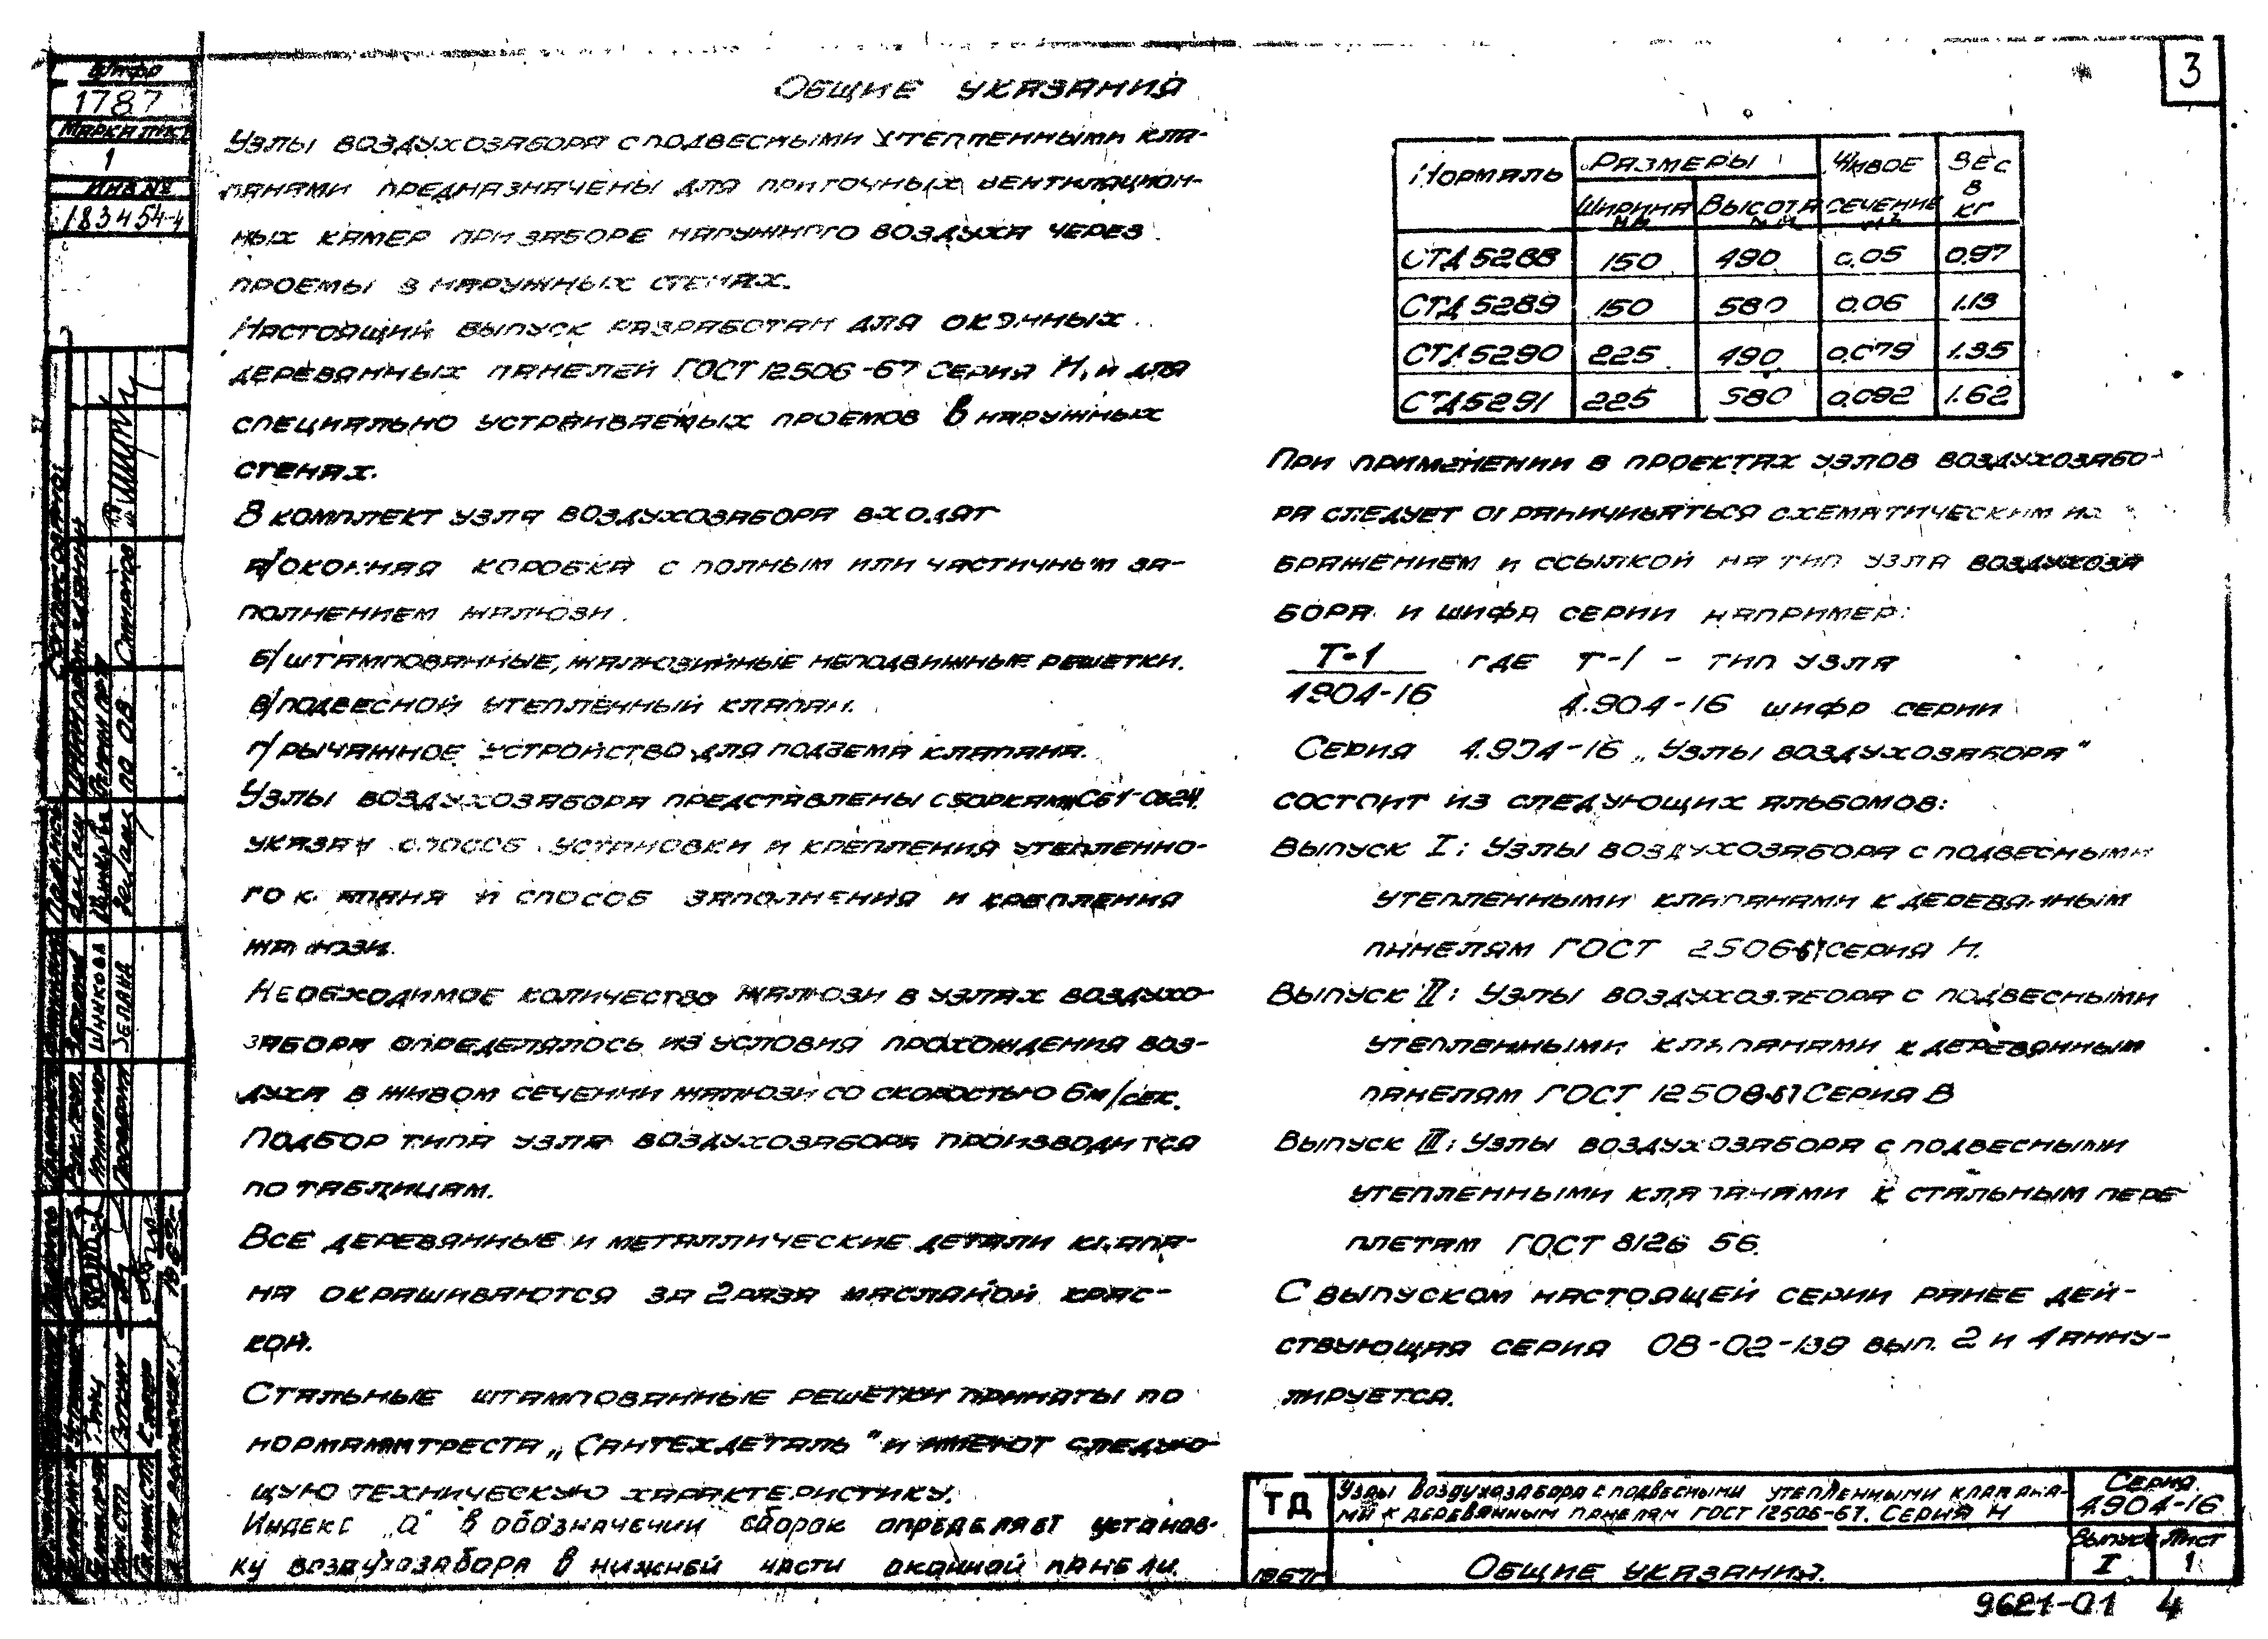 3
Шифр
1787
Марка лист
1
Инв №
183454-4
Общие указания
Узлы воздухозабора с подвесными утепленными кла-
панами предназначены для приточных вентиляцион-
ных камер при заборе наружного воздуха через
проемы в наружных стенах.
Настоящий выпуск разработан для оконных
деревянных панелей ГОСТ 12506-67 Серия Н, и для
специально устраиваемых проемов в наружных
стенах.
В комплект узла воздухозабора входят
а/ оконная коробка с полным или частичным за-
полнением жалюзи.
б/ штампованные, жалюзийные неподвижные решетки.
в/ подвесной утепленный клапан.
г/ рычажное устройство для подъема клапана.
Узлы воздухозабора представлены сборками Сб1-Сб24,
указан способ установки и крепления утепленно-
го клапана и способ заполнения и крепления
жалюзи.
Необходимое количество жалюзи в узлах воздухо-
забора определялось из условия прохождения воз-
духа в живом сечении жалюзи со скоростью 6м/сек.
Подбор типа узла воздухозабора производится
по таблицам.
Все деревянные и металлические детали клапа-
на окрашиваются за 2 раза масляной крас-
кой.
Стальные штампованные решетки приняты по
нормалям треста „Сантехдеталь" и имеют следую-
щую техническую характеристику.
Индекс „а" в обозначении сборок определяет установ-
ку воздухозабора в нижней части оконной панели.
Нормаль Размеры Живое сечение м² Вес в кг
Ширина мм Высота мм
СТД 5288 150 490 0.05 0.97
СТД 5289 150 580 0.06 1.13
СТД 5290 225 490 0.079 1.35
СТД 5291 225 580 0.092 1.62
При применении в проектах узлов воздухозабо-
ра следует ограничиваться схематическим из
бражением и ссылкой на тип узла воздухоза
бора и шифра серии например:
Т-1 где Т-1 - тип узла
4.904-16 4.904-16 шифр серии
Серия 4.904-16 „Узлы воздухозабора"
состоит из следующих альбомов:
Выпуск I: Узлы воздухозабора с подвесными
утепленными клапанами к деревянным
панелям ГОСТ 12506-67 Серия Н.
Выпуск II: Узлы воздухозабора с подвесными
утепленными клапанами к деревянным
панелям ГОСТ 12506-67 Серия В
Выпуск III: Узлы воздухозабора с подвесными
утепленными клапанами к стальным пере
плетам ГОСТ 8126 56.
С выпуском настоящей серии ранее дей-
ствующая серия 08-02-139 вып. 2 и 4 анну-
лируется.
ТД
Узлы воздухозабора с подвесными утепленными клапана-
ми к деревянным панелям ГОСТ 12506-67. Серия Н
Серия
4.904-16
1967г
Общие указания.
Выпуск Лист
I 1
9621-01 4